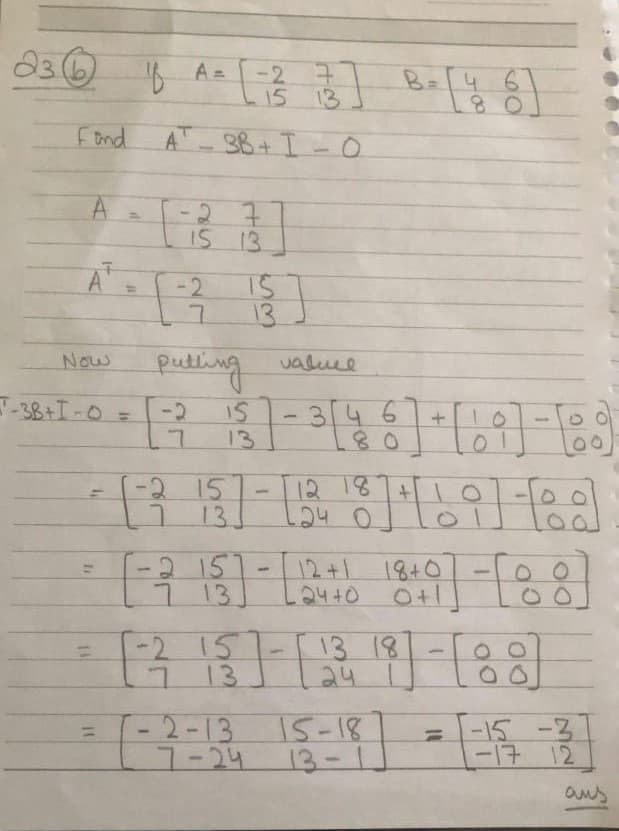 Q3 (b) If A = [ -2 7 ; 15 13 ] B = [ 4 6 ; 8 0 ]
Find A^T - 3B + I - O
A = [ -2 7 ; 15 13 ]
A^T = [ -2 15 ; 7 13 ]
Now putting value
T - 3B + I - O = [ -2 15 ; 7 13 ] - 3 [ 4 6 ; 8 0 ] + [ 1 0 ; 0 1 ] - [ 0 0 ; 0 0 ]
= [ -2 15 ; 7 13 ] - [ 12 18 ; 24 0 ] + [ 1 0 ; 0 1 ] - [ 0 0 ; 0 0 ]
= [ -2 15 ; 7 13 ] - [ 12+1 18+0 ; 24+0 0+1 ] - [ 0 0 ; 0 0 ]
= [ -2 15 ; 7 13 ] - [ 13 18 ; 24 1 ] - [ 0 0 ; 0 0 ]
= [ -2-13 15-18 ; 7-24 13-1 ] = [ -15 -3 ; -17 12 ]
ans